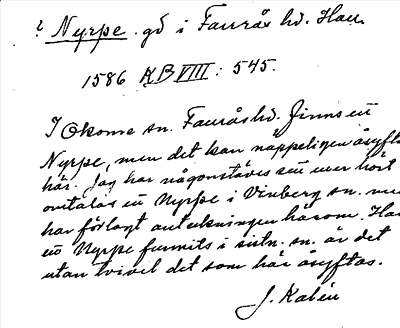 ? Nyrpe. gd i Faurås hd. Hall.
1586 KB VIII : 545.
I Okome sn. Fauråshd. finns en
Nyrpe, men det kan näppeligen åsyftas
här. Jag har någonstädes en över hört
omtalas en Nyrpe i Vinberg sn. men
har förlagt anteckningen härom. Har
en Nyrpe funnits i sistn. sn. är det
utan tvivel det som här åsyftas.
J. Kalén